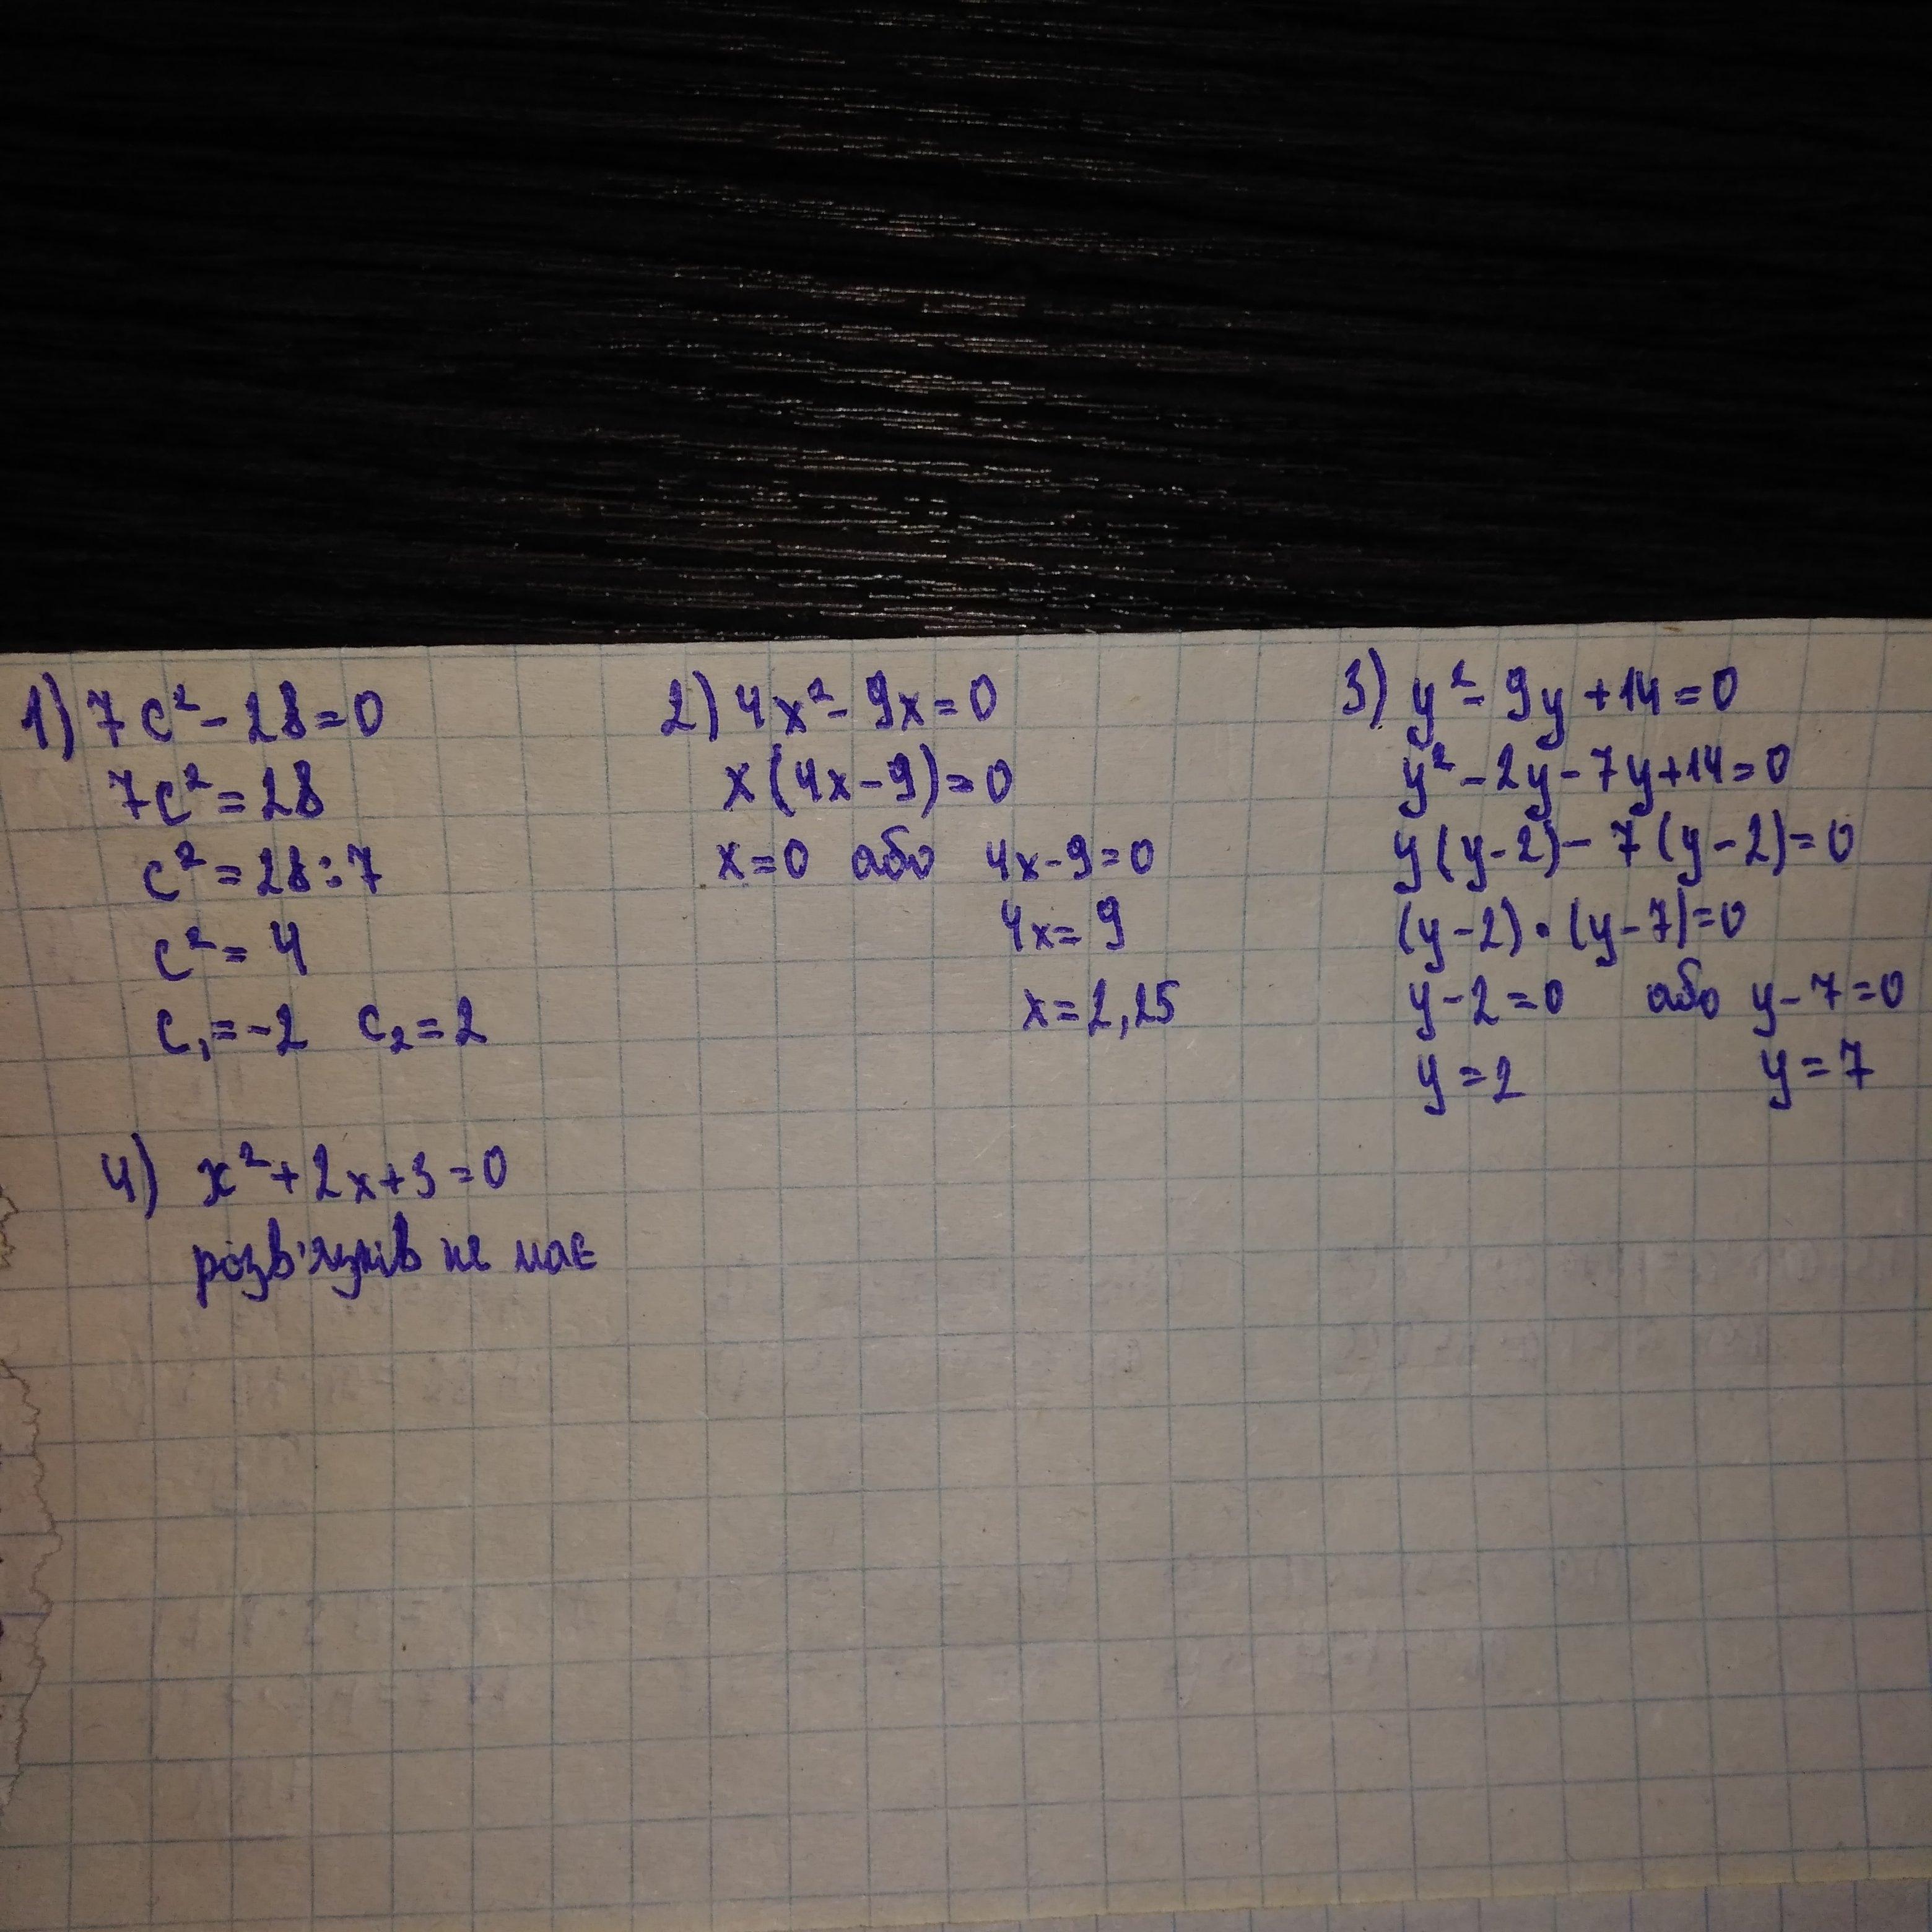 1) 7c² - 28 = 0
7c² = 28
c² = 28 : 7
c² = 4
c₁ = -2 c₂ = 2
2) 4x² - 9x = 0
x(4x - 9) = 0
x = 0 або 4x - 9 = 0
4x = 9
x = 2,25
3) y² - 9y + 14 = 0
y² - 2y - 7y + 14 = 0
y(y - 2) - 7(y - 2) = 0
(y - 2) · (y - 7) = 0
y - 2 = 0 або y - 7 = 0
y = 2 y = 7
4) x² + 2x + 3 = 0
розв'язків не має